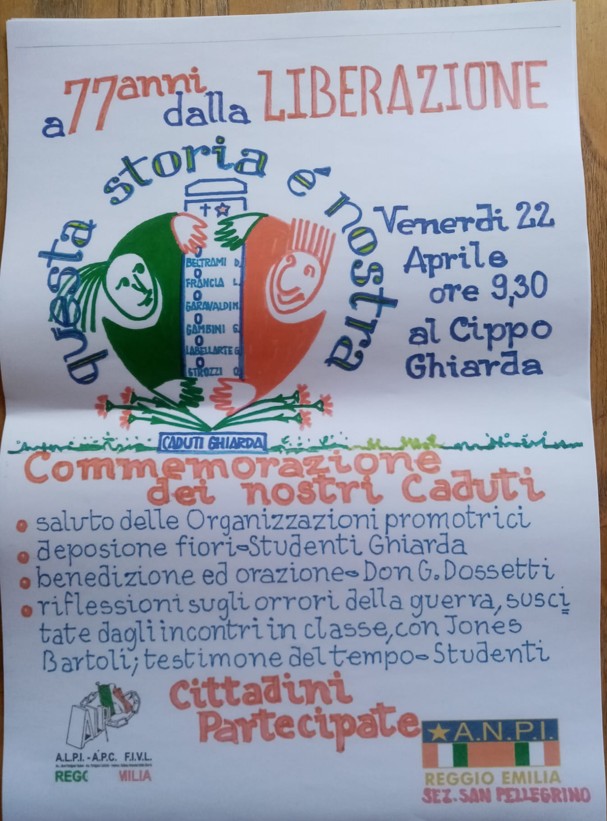 a 77 anni dalla LIBERAZIONE
questa storia é nostra
Venerdi 22
Aprile
ore 9,30
al Cippo
Ghiarda
BELTRAMI D.
FRANCIA L.
GARAVALDI M.
GAMBINI G.
LABELLARTE G.
STROZZI O.
CADUTI GHIARDA
Commemorazione
dei nostri Caduti
saluto delle Organizzazioni promotrici
deposione fiori-Studenti Ghiarda
benedizione ed orazione-Don G. Dossetti
riflessioni sugli orrori della guerra, susci
tate dagli incontri in classe, con Jones
Bartoli; testimone del tempo-Studenti
Cittadini
Partecipate
A.L.P.I. - A.P.C. F.I.V.L.
A.N.P.I.
REGGIO EMILIA
SEZ. SAN PELLEGRINO